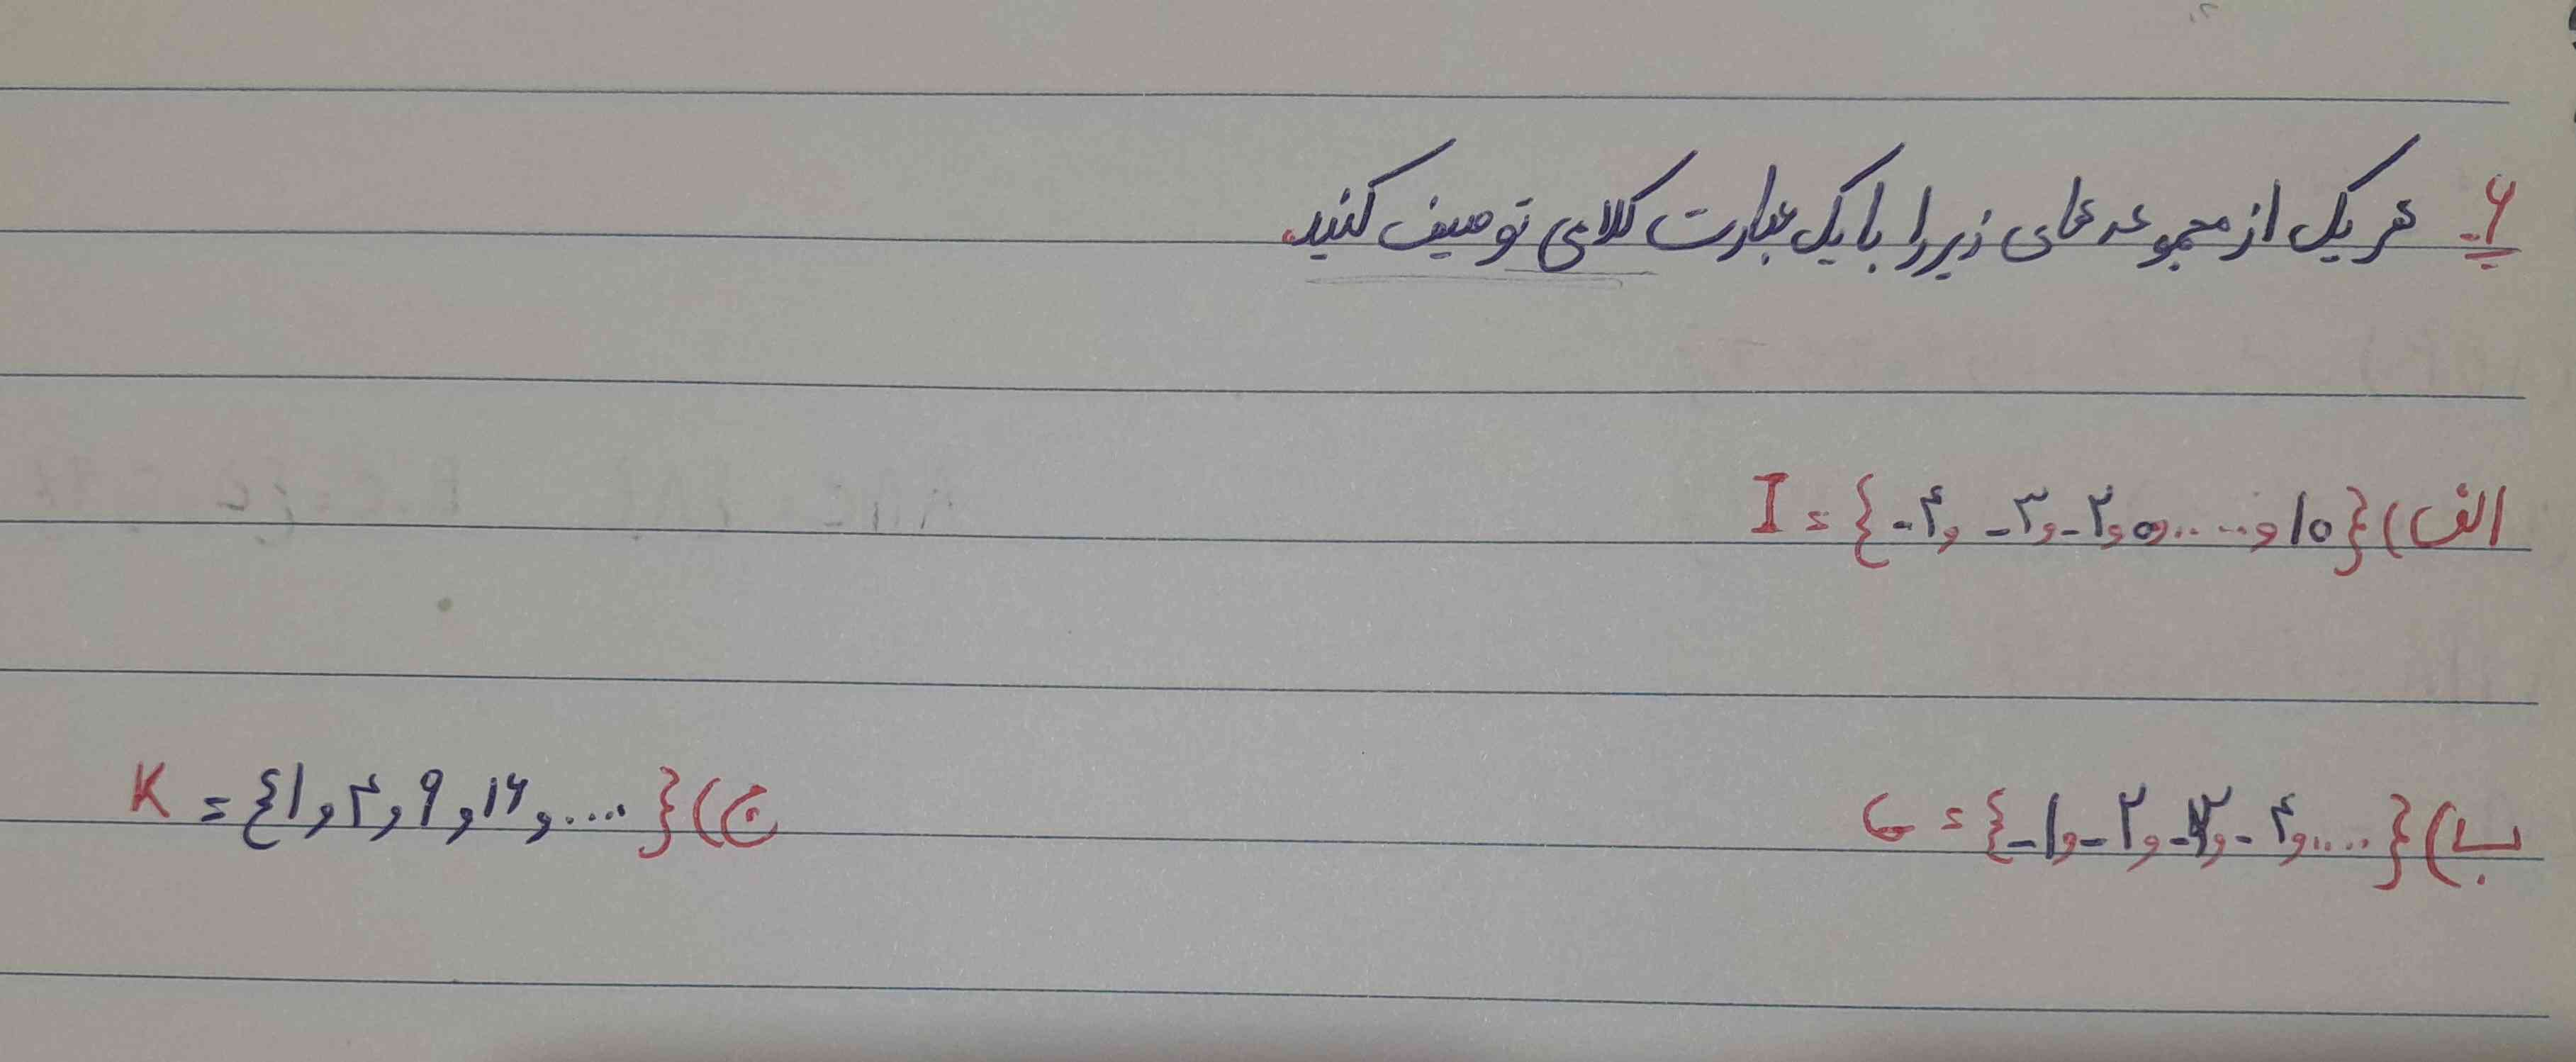 ۶- هر یک از مجموعه های زیر را با یک عبارت کلامی توصیف کنید.
الف) I = {-۴, -۳, -۲, ۰, ....., ۱۰}
ب) G = {-۱, -۲, -۳, -۴, ....}
ج) K = {۱, ۴, ۹, ۱۶, ....}